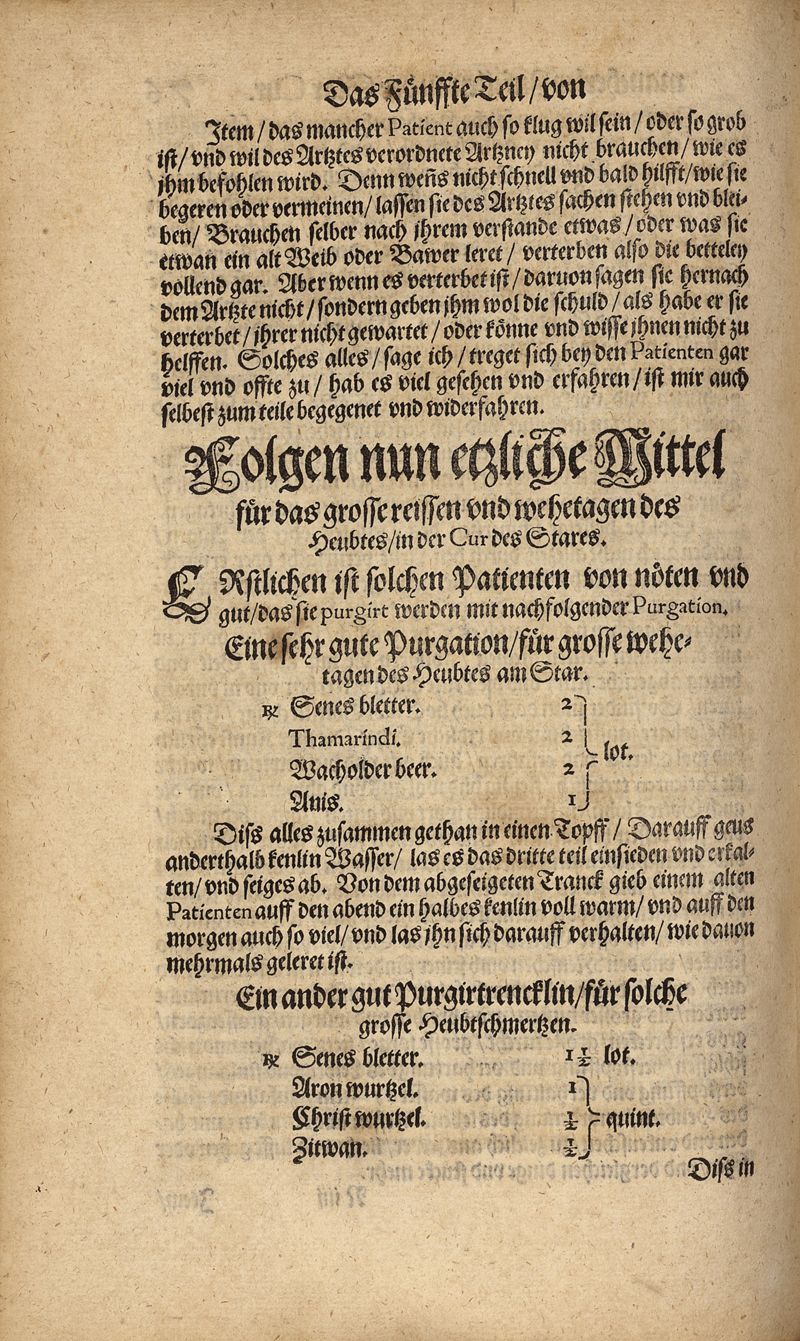 Das Fünffte Teil / von
Item / das mancher Patient auch so klug wil sein / oder so grob
ist / vnd wil des Artztes verordnete Artzney nicht brauchen / wie es
jhm befohlen wird. Denn weñs nicht schnell vnd bald hilfft / wie sie
begeren oder vermeinen / lassen sie des Artztes sachen stehen vnd blei-
ben / Brauchen selber nach jhrem verstande etwas / oder was sie
etwan ein alt Weib oder Bawer leret / verterben also die betteley
vollend gar. Aber wenn es verterbet ist / daruon sagen sie hernach
dem Artzte nicht / sondern geben jhm wol die schuld / als habe er sie
verterbet / jhrer nicht gewartet / oder könne vnd wisse jhnen nicht zu
helffen. Solches alles / sage ich / treget sich bey den Patienten gar
viel vnd offte zu / hab es viel gesehen vnd erfahren / ist mir auch
selbest zum teile begegenet vnd widerfahren.
Folgen nun etzliche Mittel
für das grosse reissen vnd wehetagen des
Heubtes / in der Cur des Stares.
ERstlichen ist solchen Patienten von nöten vnd
gut / das sie purgirt werden mit nachfolgender Purgation.
Eine sehr gute Purgation / für grosse wehe-
tagen des Heubtes am Star.
℞ Senes bletter. 2
Thamarindi. 2
lot.
Wacholder beer. 2
Anis. 1
Diss alles zusammen gethan in einen Topff / Darauff geus
anderthalb kenlin Wasser / las es das dritte teil einsieden vnd erkal-
ten / vnd seiges ab. Von dem abgeseigeten Tranck gieb einem alten
Patienten auff den abend ein halbes kenlin voll warm / vnd auff den
morgen auch so viel / vnd las jhn sich darauff verhalten / wie dauon
mehrmals geleret ist.
Ein ander gut Purgirtrencklin / für solche
grosse Heubtschmertzen.
℞ Senes bletter. 1 ½ lot.
Aron wurtzel. 1
Christ wurtzel. ½ quint.
Zitwan. ½
Diss in